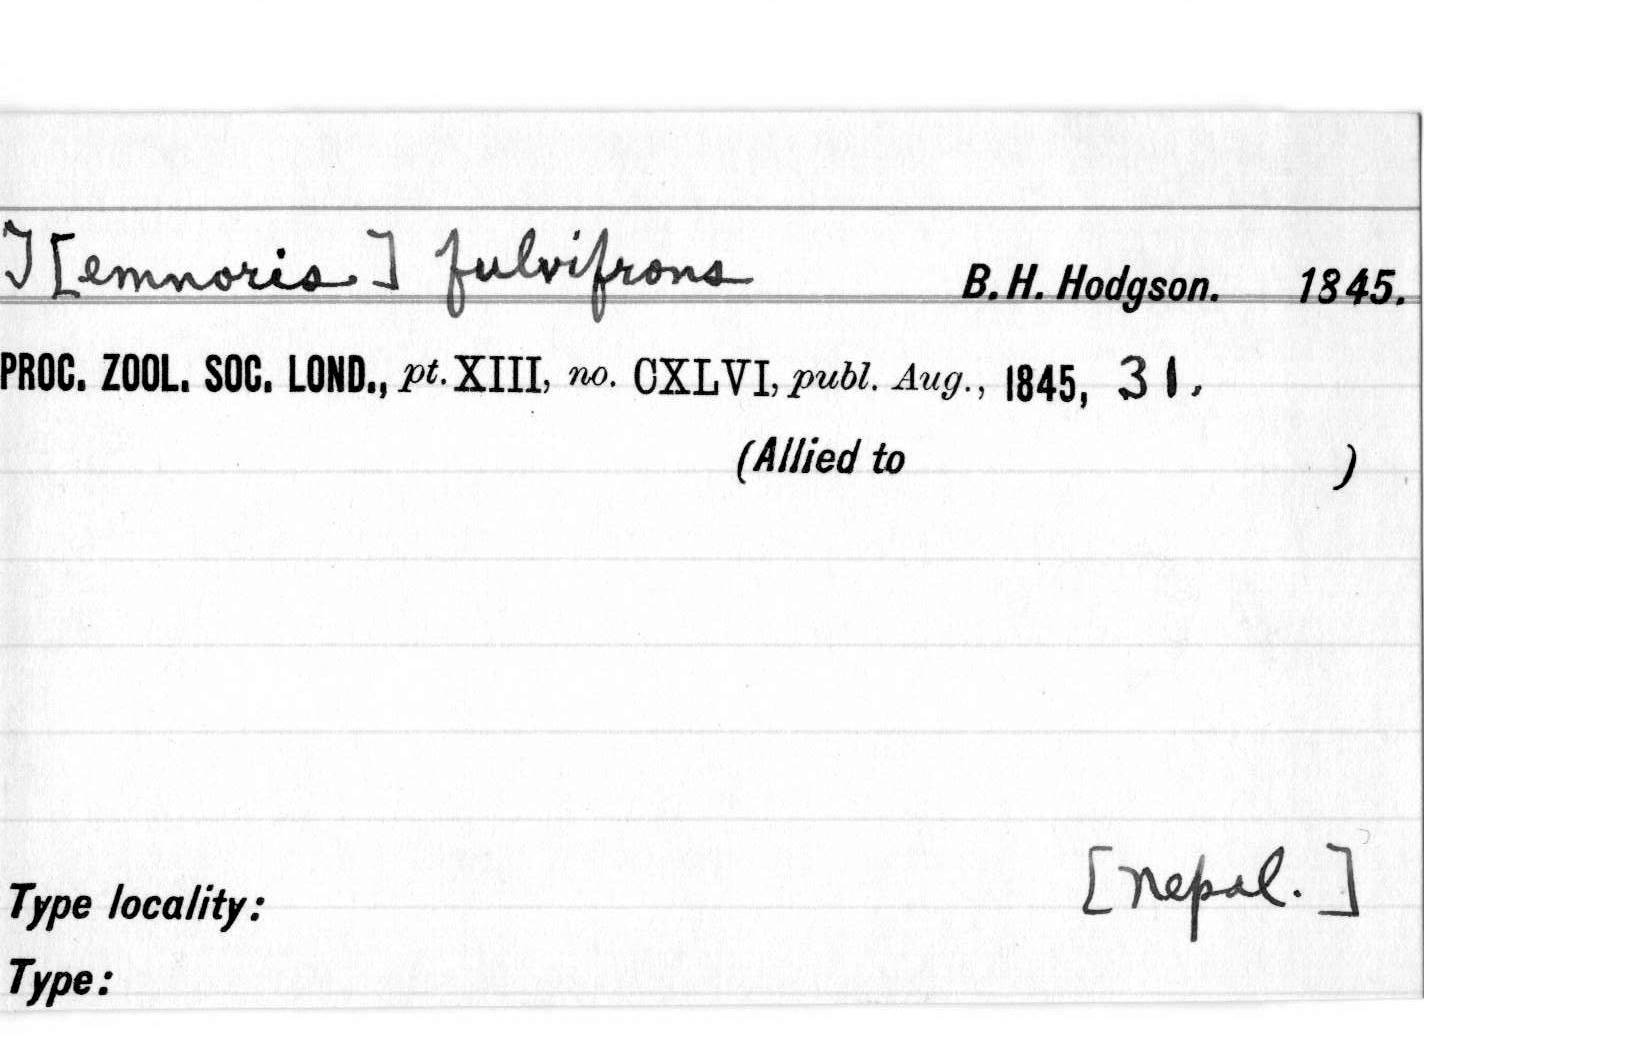 T[emnoris.] fulvifrons B. H. Hodgson. 1845.
PROC. ZOOL. SOC. LOND., pt. XIII, no. CXLVI, publ. Aug., 1845, 31.
(Allied to )
Type locality: [Nepal.]
Type: